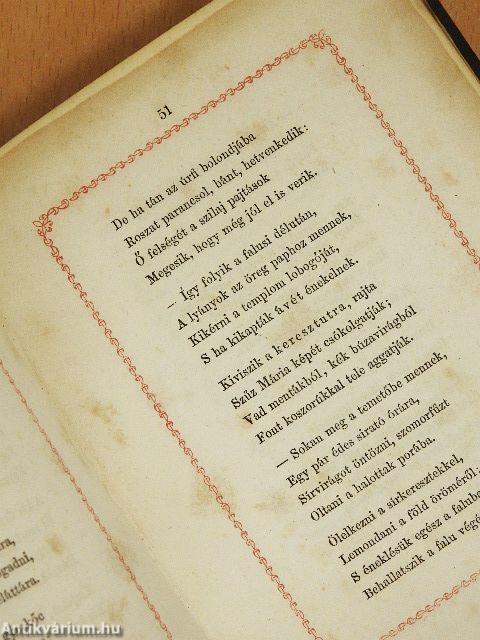 51
De ha tán az úrfi bolondjába
Roszat parancsol, bánt, hetvenkedik:
Ő felségét a szilaj pajtások
Megesik, hogy még jól el is verik.
— Így folyik a falusi délután,
A lyányok az öreg paphoz mennek,
Kikérni a templom lobogóját,
S ha kikapták ávét énekelnek.
Kiviszik a keresztutra, rajta
Szűz Mária képét csókolgatják;
Vad mentákból, kék búzavirágból
Font koszorúkkal tele aggatják.
— Sokan meg a temetőbe mennek,
Egy pár édes sirató órára,
Sírvirágot öntözni, szomorfűzt
Oltani a halottak porába.
Ölelkezni a sírkeresztekkel,
Lemondani a föld öröméről;
S éneklésük egész a falub
Behallatszik a falu végé
Antikvárium.hu